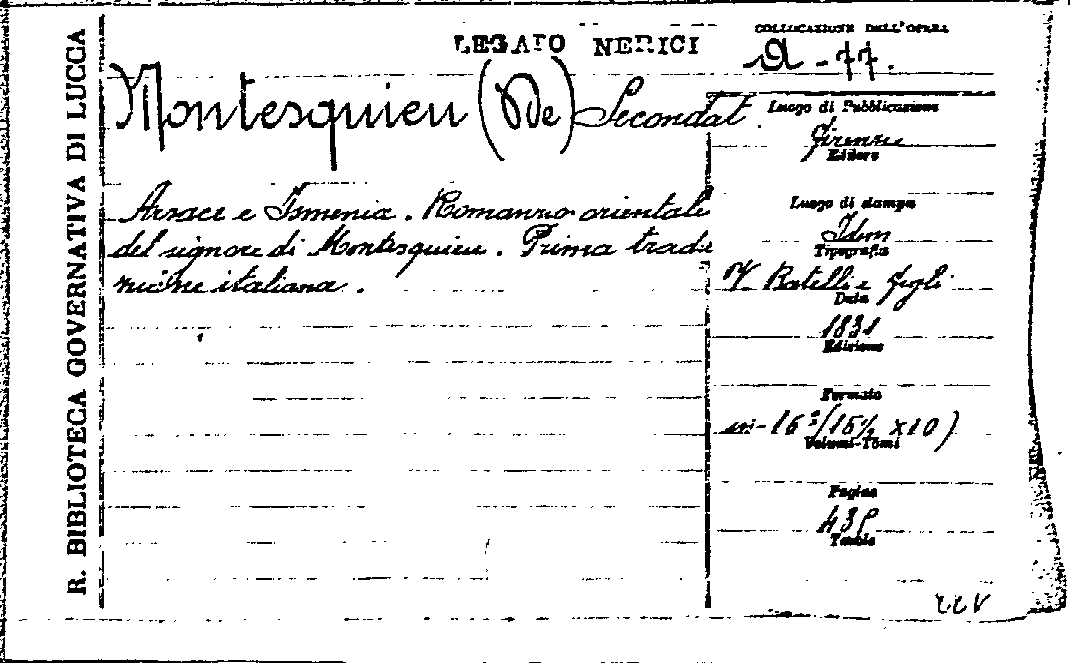 R. BIBLIOTECA GOVERNATIVA DI LUCCA
LEGATO NERICI
Montesquieu (De) Secondat
Arsace e Ismenia. Romanzo orientale
del signore di Montesquieu. Prima tradu
zione italiana.
COLLOCAZIONE DELL'OPERA
A-77.
Luogo di Pubblicazione
Firenze
Editore
Luogo di stampa
Idem
Tipografia
V Batelli e figli
Data
1831
Edizione
Formato
in-16º (15½ x10)
Volumi-Tomi
Pagine
Tavole